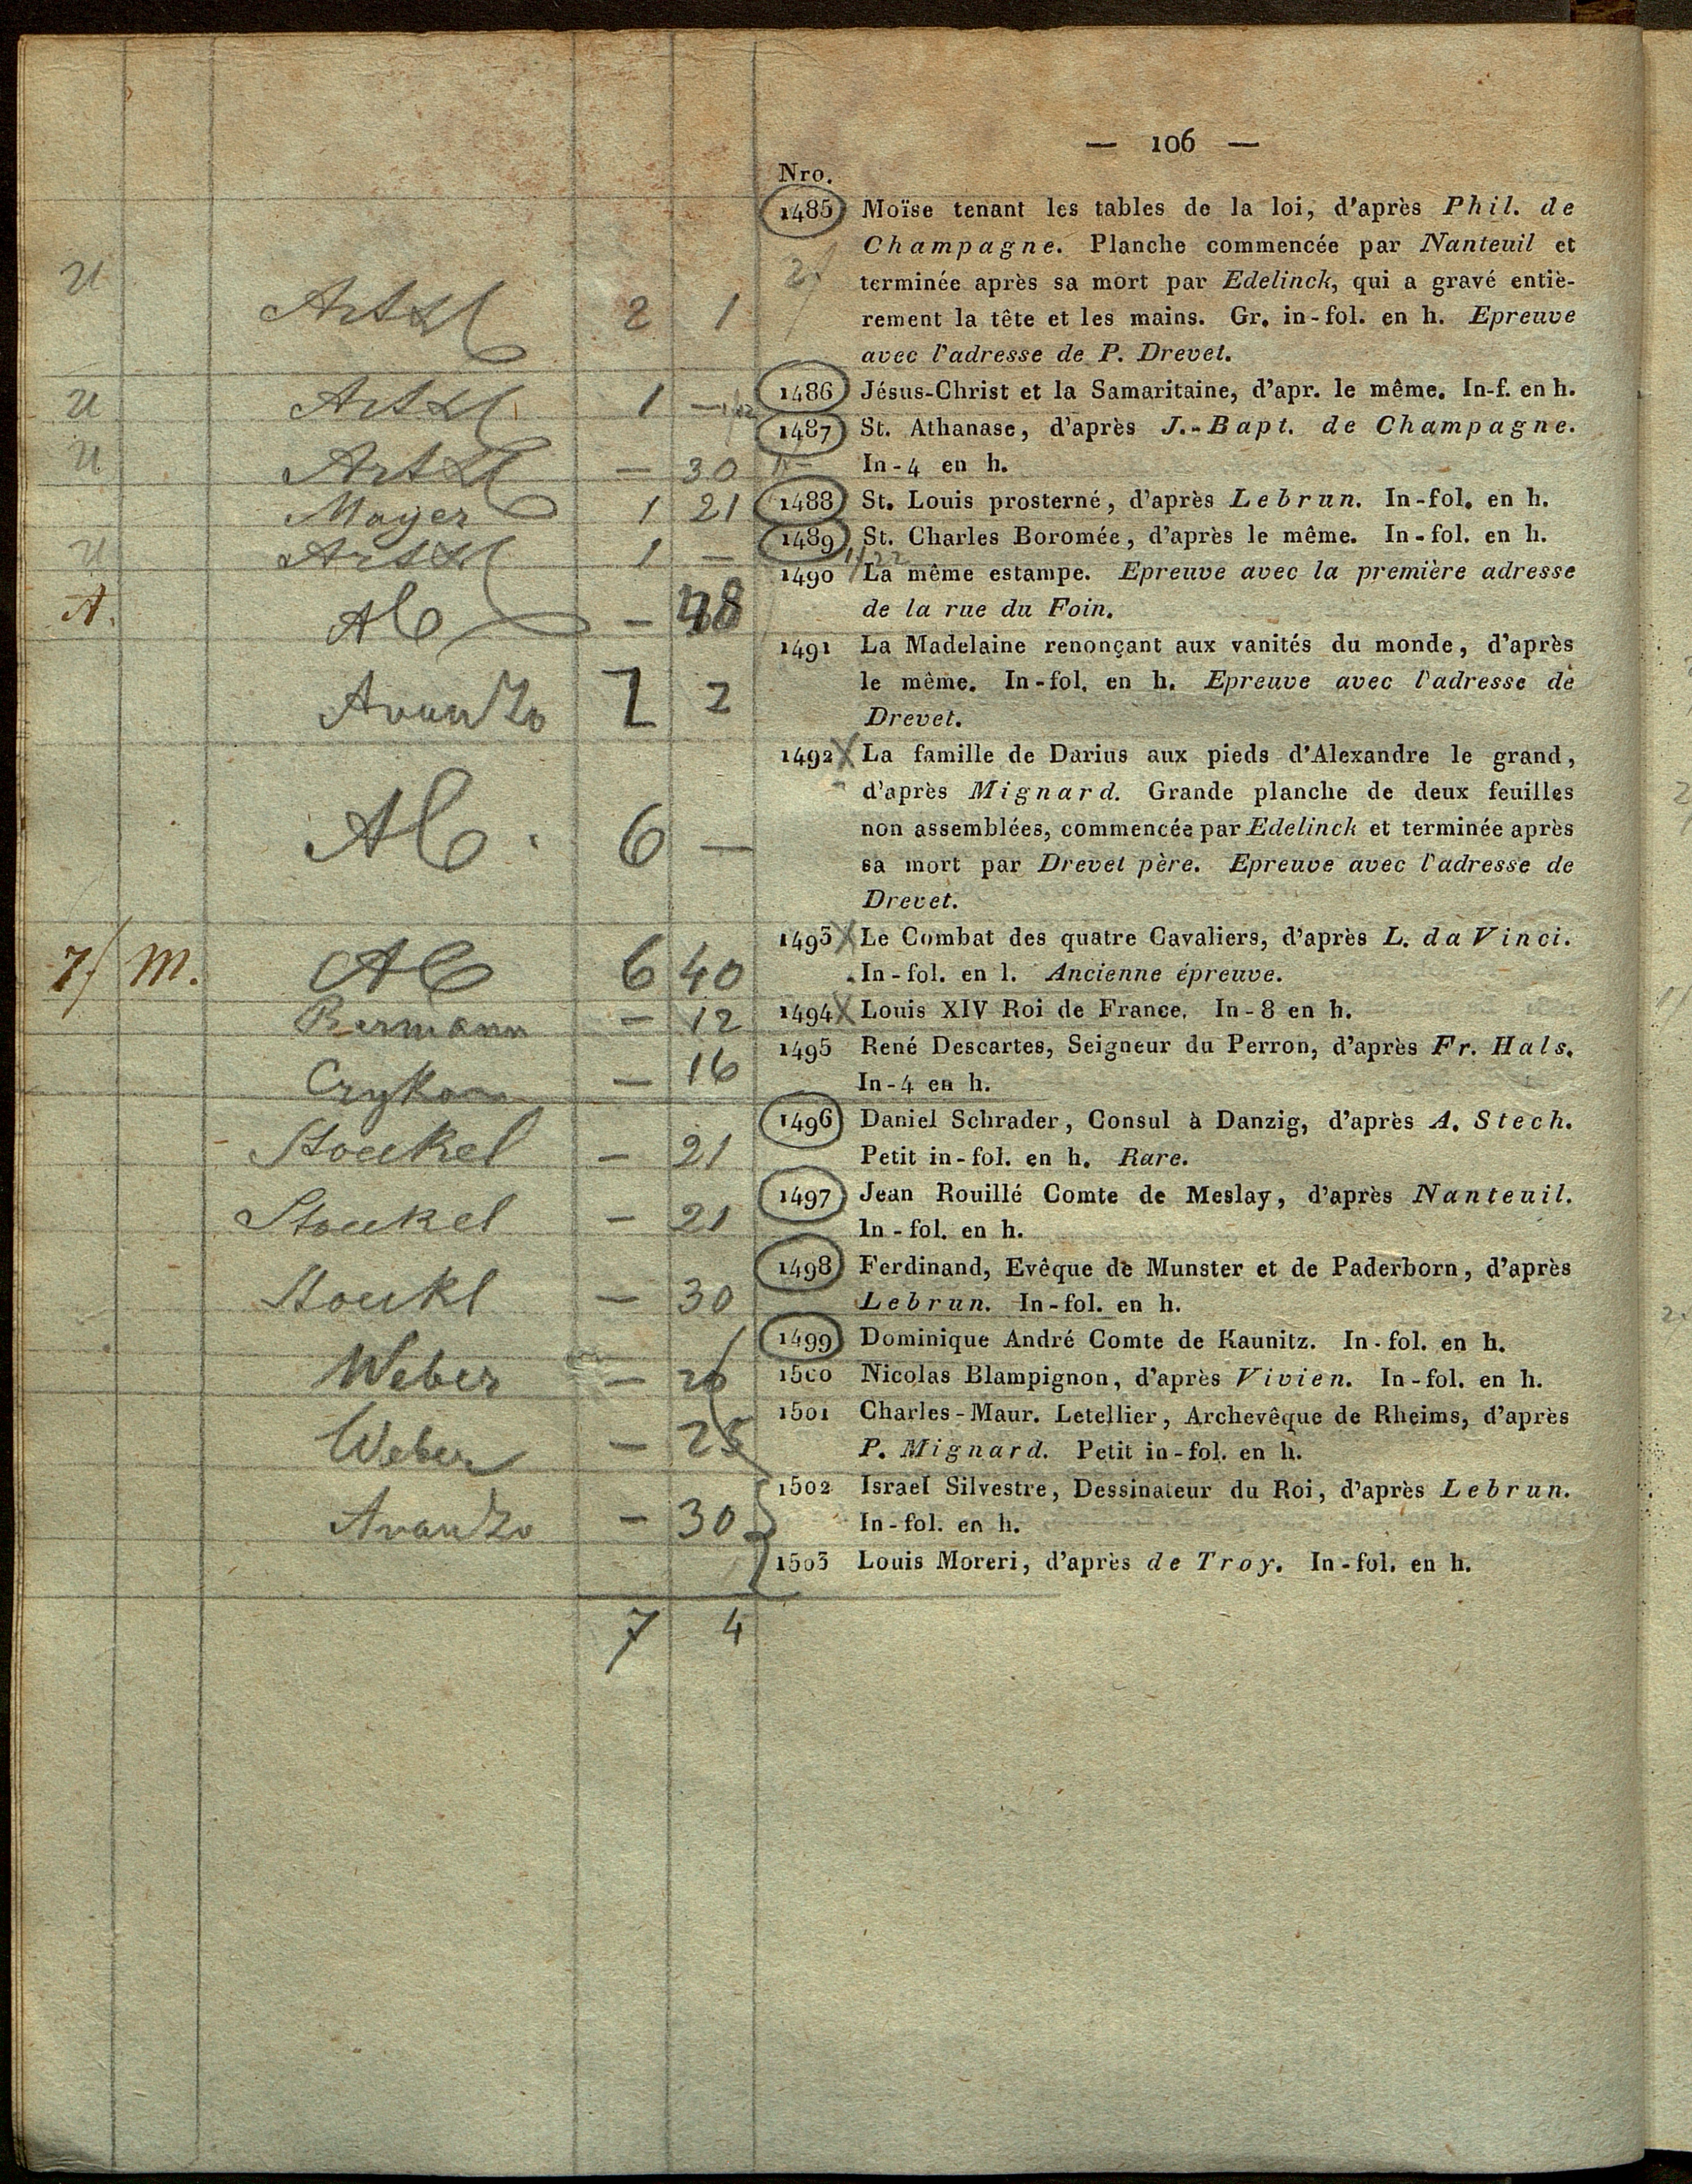 — 106 —
Nro.
1485 Moïse tenant les tables de la loi, d'après Phil. de
Champagne. Planche commencée par Nanteuil et
2
u Artzl 2 1 terminée après sa mort par Edelinck, qui a gravé entiè-
rement la tête et les mains. Gr. in-fol. en h. Epreuve
avec l'adresse de P. Drevet.
u Artzl 1 — 1486 Jésus-Christ et la Samaritaine, d'apr. le même. In-f. en h.
1487 St. Athanase, d'après J.-Bapt. de Champagne.
u Artzl — 30 In-4 en h.
Mayer 1 21 1488 St. Louis prosterné, d'après Lebrun. In-fol. en h.
u Artzl 1 — 1489 St. Charles Boromée, d'après le même. In-fol. en h.
1490 La même estampe. Epreuve avec la première adresse
A. Al — 48 de la rue du Foin.
1491 La Madelaine renonçant aux vanités du monde, d'après
Avanzo 7 2 le même. In-fol. en h. Epreuve avec l'adresse de
Drevet.
1492 X La famille de Darius aux pieds d'Alexandre le grand,
d'après Mignard. Grande planche de deux feuilles
Al. 6 — non assemblées, commencée par Edelinck et terminée après
sa mort par Drevet père. Epreuve avec l'adresse de
Drevet.
1493 X Le Combat des quatre Cavaliers, d'après L. da Vinci.
7/ m. Al 6 40 In-fol. en l. Ancienne épreuve.
Bermann — 12 1494 X Louis XIV Roi de France. In-8 en h.
1495 René Descartes, Seigneur du Perron, d'après Fr. Hals.
— 16 In-4 en h.
1496 Daniel Schrader, Consul à Danzig, d'après A. Stech.
Stoeckel — 21 Petit in-fol. en h. Rare.
1497 Jean Rouillé Comte de Meslay, d'après Nanteuil.
Stoeckel — 21 In-fol. en h.
1498 Ferdinand, Evêque de Munster et de Paderborn, d'après
Stoekl — 30 Lebrun. In-fol. en h.
1499 Dominique André Comte de Kaunitz. In-fol. en h.
Weber — 26 1500 Nicolas Blampignon, d'après Vivien. In-fol. en h.
1501 Charles-Maur. Letellier, Archevêque de Rheims, d'après
Weber — 25 P. Mignard. Petit in-fol. en h.
1502 Israel Silvestre, Dessinateur du Roi, d'après Lebrun.
Avanzo — 30 In-fol. en h.
1503 Louis Moreri, d'après de Troy. In-fol. en h.
7 4